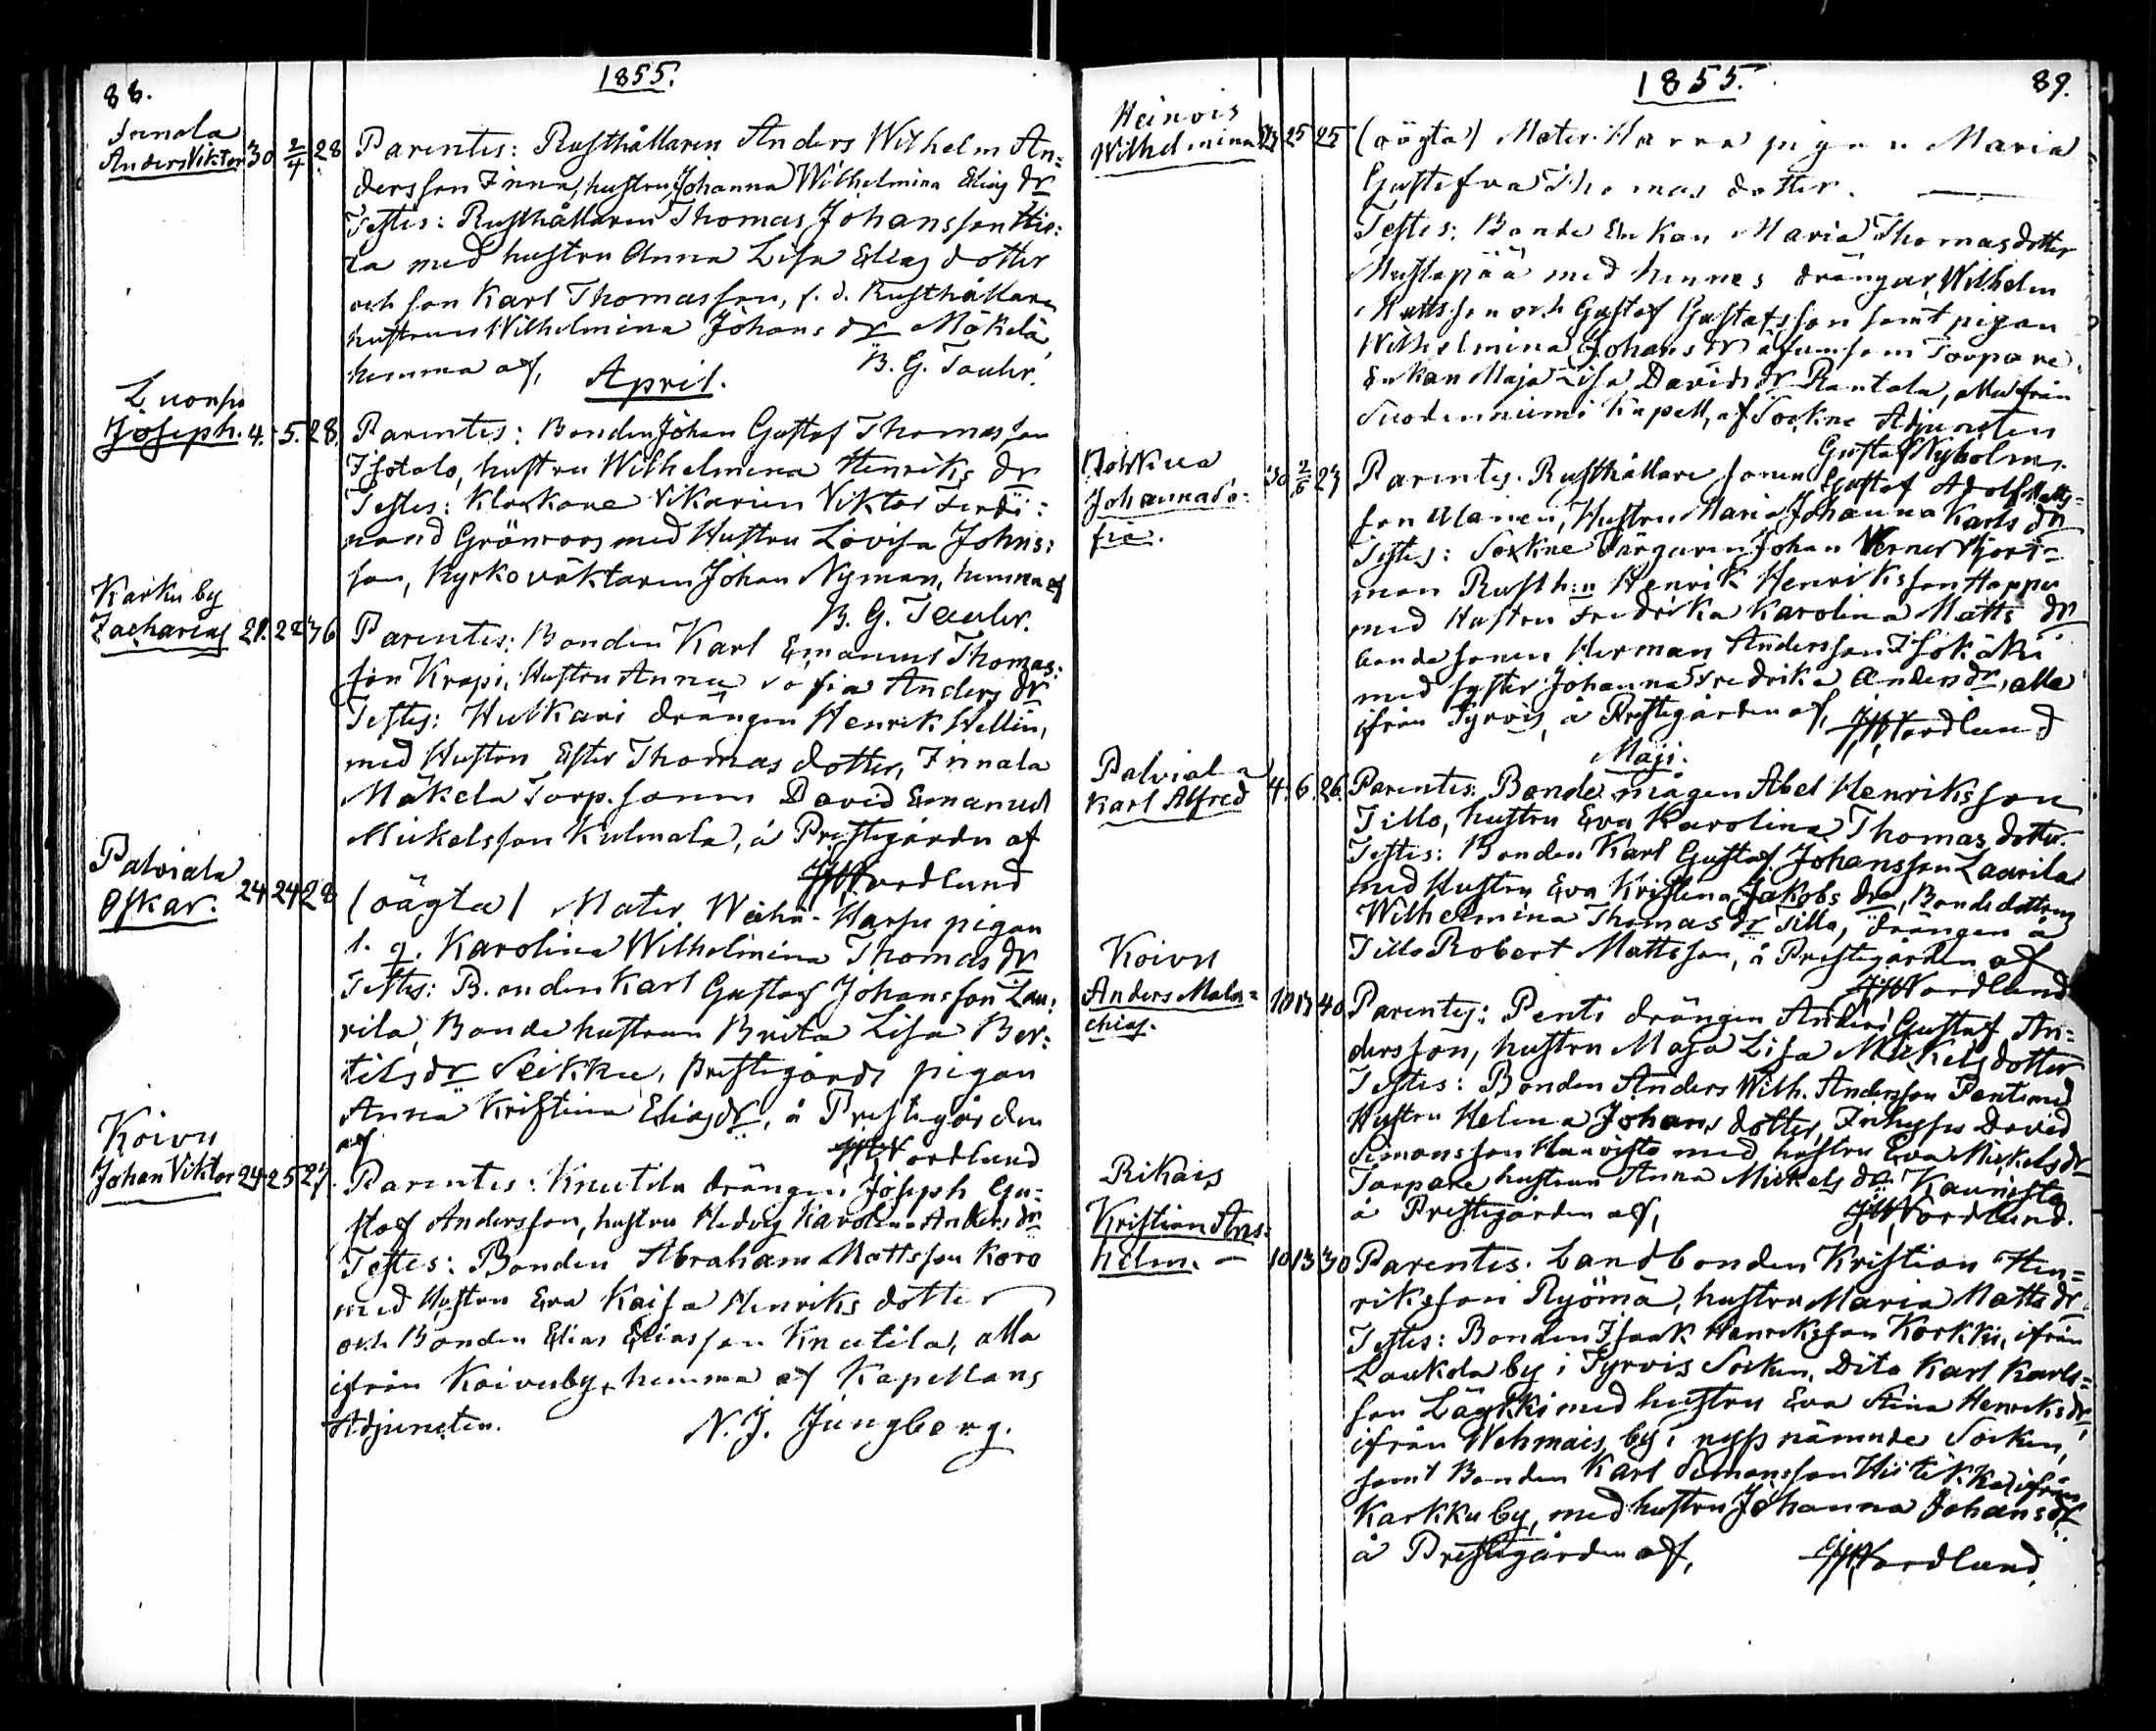 88.
1855.
Innala
Anders Viktor 30 2/4 28
Parentes: Rusthållaren Anders Wilhelm An=
dersson Finna, hustru Johanna Wilhelmina Elias dr
Testes: Rusthållaren Thomas Johansson Hie:
ta med hustru Anna Lisa Elias dotter
och son Karl Thomasson, f. d. Rusthållare
hustrun Wilhelmina Johans dr Mäkelä,
hemma af, B. G. Tauler.
April.
Luonsi
Joseph. 4. 5. 28.
Parentes: Bonden Johan Gustaf Thomasson
Isotalo, hustru Wilhelmina Henriks dr
Testes: Klockare Vikarien Viktor Ferdi:
nand Grönroos med Hustru Lovisa Johns:
son, Kyrkováktaren Johan Nyman, hemma af
B. G. Tauler.
Karku by
Zacharias 21. 22 36
Parentes: Bonden Karl Emanuel Thomas:
son Krapi, Hustru Anna Sofia Anders dr
Testes: Hulkari drängen Henrik Hellin,
med Hustru Ester Thomas dotter, Innala
Mäkelä Torp. sonen David Emanuel
Mickelsson Kulmala, å Prestegården af
JWNordlund
Palviala
Oskar. 24 24 28
(oägta) Mater Harju pigan
l. q. Karolina Wilhelmina Thomas dr
Testes: Bonden Karl Gustaf Johansson Lau:
rila, Bonde hustrun Brita Lisa Ber:
tils dr Seikku, Prestegårds pigan
Anna Kristina Elias dr, å Prestegården
af JWNordlund
Koivu
Johan Viktor 24 25 27.
Parentes: Knutila drängen Joseph Gu=
staf Andersson, hustru Hedvig Karolina Anders dr
Testes: Bonden Abraham Mattsson Koro
med Hustru Eva Kaisa Henriks dotter
och Bonden Elias Eliasson Knutila, alla
ifrån Koivuby, hemma af Kapellans
Adjuncten. N. J. Jungberg.
1855.
89.
Heinois
Wilhelmina 23 25 25
(oägta) Mater. Harra pigan Maria
Gustafva Thomas dotter.
Testes: Bonde Enkan Maria Thomasdotter
Mustapää med hennes drängar, Wilhelm
Mattsson och Gustaf Gustafsson samt pigan
Wilhelmina Johans dr äfvensom Torpare
Enkan Maja Lisa Davids dr Rantala, alla från
Suodenniemi Kapell, af Sockne Adjuncten
Gustaf Nyholm.
Johanna So=
fia. 30 2/5 27
Parentes. Rusthållare sonen Gustaf Adolf Matts=
son Alanen, Hustru Maria Johanna Karls dr
Testes: Sockne Färgaren Johan Verner Hjort=
man Rusth:n Henrik Henriksson Happu
med Hustru Fredrika Karolina Matts dr
bonde sonen Herman Andersson Isokäki
med syster Johanna Fredrika Anders dr, alla
ifrån Tyrvis, å Prestegården af, JWNordlund
Maji.
Palviala
Karl Alfred 4. 6. 26.
Parentes: Bonde mågen Abel Henriksson
Tillo, hustru Eva Karolina Thomas dotter.
Testes: Bonden Karl Gustaf Johansson Laurila
med Hustru Eva Kristina Jakobs dr, Bonde dottren
Wilhelmina Thomas dr Tillo, drängen å
Tillo Robert Mattsson, å Prestegården af
JWNordlund
Koivu
Anders Mala=
chias. 10 13 40
Parentes: Penti drängen Anders Gustaf An=
dersson, hustru Maja Lisa Mickels dotter
Testes: Bonden Anders Wilh. Andersson Penti med
Hustru Helena Johans dotter, Inhyses David
Simonsson Hanvisto med hustru Eva Mickels dr
Torpare hustrun Anna Mickels dr Kaunisto
å Prestegården af, JWNordlund.
Rikais
Kristian Ans=
helm. — 10 13 30
Parentes. Landbonden Kristian Hen=
riksson Ryömä, hustru Maria Matts dr.
Testes: Bonden Isaak Henriksson Korkki, ifrån
Laukola by i Tyrvis Socken, Dito Karl Karls=
son Lägkki med hustru Eva Stina Henriks dr,
ifrån Wehmais by i nyss nämnde Socken,
samt Bonden Karl Simonsson Hiitikka ifrån
Karkku by, med hustru Johanna Johans dr
å Prestegården af, JWNordlund.